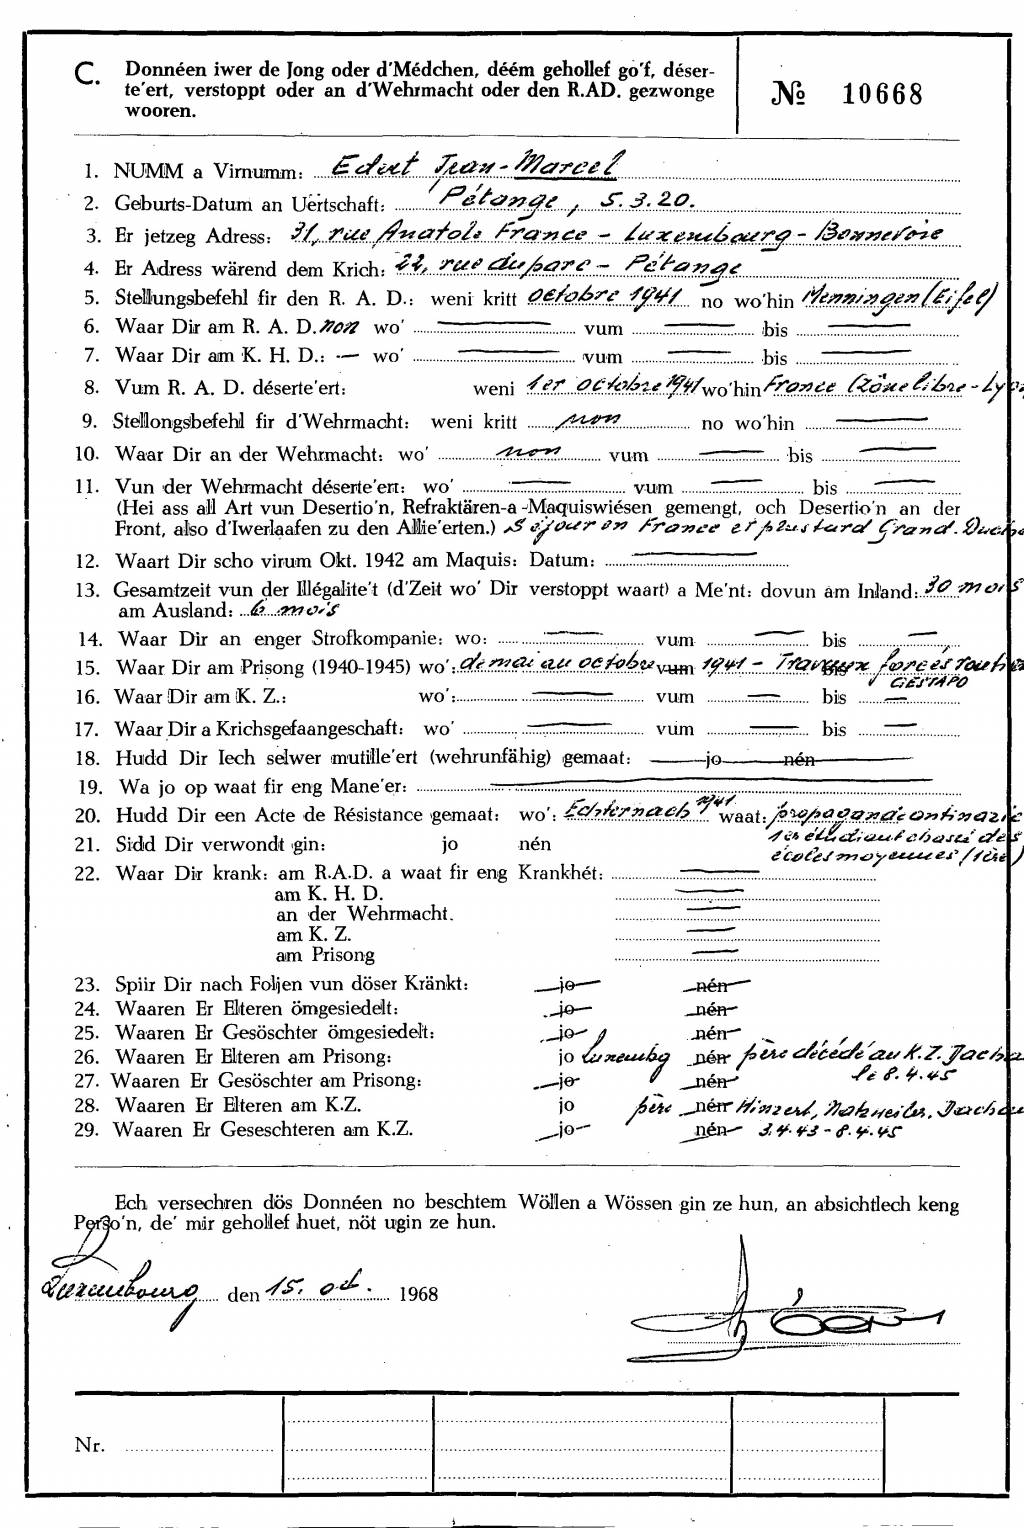 C. Donnéen iwer de Jong oder d'Médchen, déém gehollef go'f, déser-
te'ert, verstoppt oder an d'Wehrmacht oder den R.AD. gezwonge
wooren.
№ 10668
1. NUMM a Virnumm: Edert Jean-Marcel
2. Geburts-Datum an Uertschaft: Pétange, 5.3.20.
3. Er jetzeg Adress: 31, rue Anatole France - Luxembourg - Bonnevoie
4. Er Adress wärend dem Krich: 22, rue du parc - Pétange
5. Stellungsbefehl fir den R. A. D.: weni kritt octobre 1941 no wo'hin Menningen (Eifel)
6. Waar Dir am R. A. D. non wo' vum bis
7. Waar Dir am K. H. D.: — wo' vum bis
8. Vum R. A. D. déserte'ert: weni 1er octobre 1941 wo'hin France (zône libre - Lyon
9. Stellongsbefehl fir d'Wehrmacht: weni kritt non no wo'hin
10. Waar Dir an der Wehrmacht: wo' non vum bis
11. Vun der Wehrmacht déserte'ert: wo' vum bis
(Hei ass all Art vun Desertio'n, Refraktären-a-Maquiswiésen gemengt, och Desertio'n an der
Front, also d'Iwerlaafen zu den Allie'erten.) Séjour en France et plus tard Grand-Duché
12. Waart Dir scho virum Okt. 1942 am Maquis: Datum:
13. Gesamtzeit vun der Illégalite't (d'Zeit wo' Dir verstoppt waart) a Me'nt: dovun am Inland: 30 mois
am Ausland: 6 mois
14. Waar Dir an enger Strofkompanie: wo: vum bis
15. Waar Dir am Prisong (1940-1945) wo': de mai au octobre vum 1941 - Travaux bis forcés routiers
GESTAPO
16. Waar Dir am K. Z.: wo': vum bis
17. Waar Dir a Krichsgefaangeschaft: wo' vum bis
18. Hudd Dir Iech selwer mutille'ert (wehrunfähig) gemaat: jo nén
19. Wa jo op waat fir eng Mane'er:
20. Hudd Dir een Acte de Résistance gemaat: wo': Echternach 1941 waat: propagande antinazie
1er étudiant chassé des
21. Sidd Dir verwondt gin: jo nén
écoles moyennes (1ère)
22. Waar Dir krank: am R.A.D. a waat fir eng Krankhét:
am K. H. D.
an der Wehrmacht.
am K. Z.
am Prisong
23. Spiir Dir nach Foljen vun döser Kränkt: jo nén
24. Waaren Er Elteren ömgesiedelt: jo nén
25. Waaren Er Gesöschter ömgesiedelt: jo nén
26. Waaren Er Elteren am Prisong: jo Luxembg nén père décédé au K.Z. Dachau
le 8.4.45
27. Waaren Er Gesöschter am Prisong: jo nén
28. Waaren Er Elteren am K.Z. jo père nén Hinzert, Natzweiler, Dachau
29. Waaren Er Geseschteren am K.Z. jo nén 3.4.43 - 8.4.45
Ech versechren dös Donnéen no beschtem Wöllen a Wössen gin ze hun, an absichtlech keng
Perso'n, de' mir gehollef huet, nöt ugin ze hun.
Luxembourg den 15. oct. 1968
Nr.